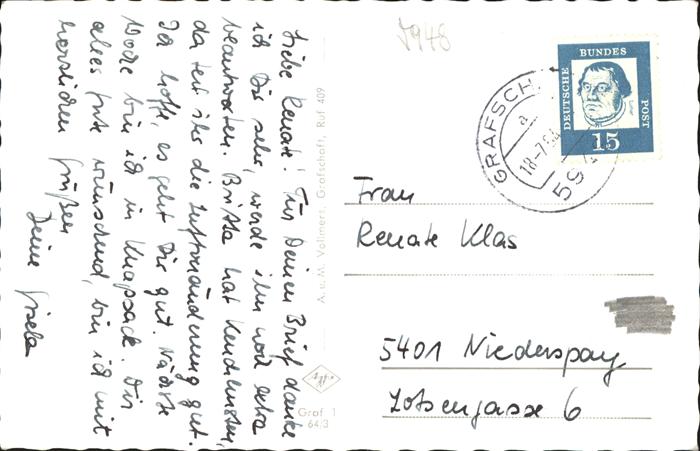 Liebe Renate! Für Deinen Brief danke
ich Dir sehr, werde ihn noch extra
beantworten. Britta hat Keuchhusten,
da tut ihr die Luftveränderung gut.
Ich hoffe, es geht Dir gut. Nächste
Woche bin ich in Knapsack. Dir
alles gute wünschend, bin ich mit
herzlichen Grüßen
Deine Gisela
A. u. M. Vollmers, Grafschaft, Ruf 409
Graf 1
64/3
DEUTSCHE
BUNDES
POST
15
GRAFSCH
a
18-7
594
Frau
Renate Klas
5401 Niederspay
Lotsengasse 6